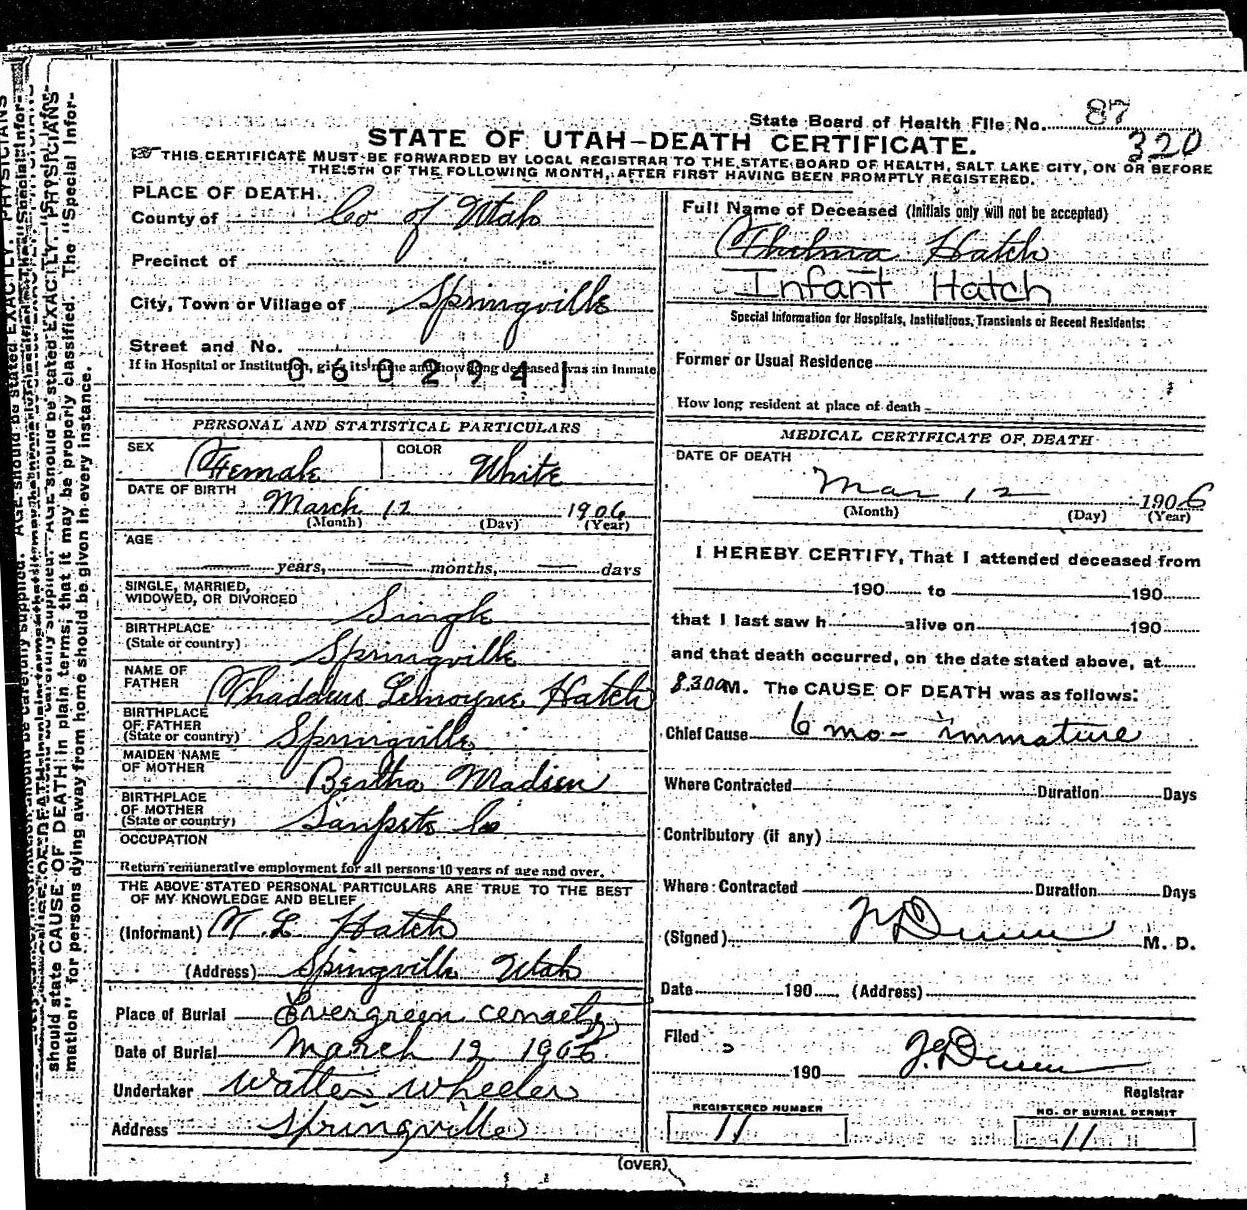 State Board of Health File No. 87
320
STATE OF UTAH—DEATH CERTIFICATE.
THIS CERTIFICATE MUST BE FORWARDED BY LOCAL REGISTRAR TO THE STATE BOARD OF HEALTH, SALT LAKE CITY, ON OR BEFORE
THE 5TH OF THE FOLLOWING MONTH, AFTER FIRST HAVING BEEN PROMPTLY REGISTERED.
PLACE OF DEATH.
County of Co of Utah
Precinct of
City, Town or Village of Springville
Street and No.
If in Hospital or Institution, give its name and how long deceased was an Inmate
0602941
PERSONAL AND STATISTICAL PARTICULARS
SEX Female COLOR White
DATE OF BIRTH
March 12 1906
(Month) (Day) (Year)
AGE
years, months, days
SINGLE, MARRIED,
WIDOWED, OR DIVORCED Single
BIRTHPLACE
(State or country) Springville
NAME OF
FATHER Thaddeus Lemoyne Hatch
BIRTHPLACE
OF FATHER
(State or country) Springville
MAIDEN NAME
OF MOTHER Bertha Madsen
BIRTHPLACE
OF MOTHER
(State or country) Sanpete Co
OCCUPATION
Return remunerative employment for all persons 10 years of age and over.
THE ABOVE STATED PERSONAL PARTICULARS ARE TRUE TO THE BEST
OF MY KNOWLEDGE AND BELIEF
(Informant) T. L. Hatch
(Address) Springville Utah
Place of Burial Evergreen cemetery
Date of Burial March 12 1906.
Undertaker Walter Wheeler
Address Springville
Full Name of Deceased (Initials only will not be accepted)
Thelma Hatch
Infant Hatch
Special Information for Hospitals, Institutions, Transients or Recent Residents:
Former or Usual Residence
How long resident at place of death
MEDICAL CERTIFICATE OF DEATH
DATE OF DEATH
Mar 12 1906
(Month) (Day) (Year)
I HEREBY CERTIFY, That I attended deceased from
190 to 190
that I last saw h alive on 190
and that death occurred, on the date stated above, at
8.30 a M. The CAUSE OF DEATH was as follows:
Chief Cause 6 mo - immature
Where Contracted Duration Days
Contributory (if any)
Where Contracted Duration Days
(Signed) Dunn M. D.
Date 190 (Address)
Filed
190 Dunn
Registrar
REGISTERED NUMBER
11
NO. OF BURIAL PERMIT
11
(OVER)
should state CAUSE OF DEATH in plain terms, that it may be properly classified. The "Special Infor-
mation" for persons dying away from home should be given in every instance.